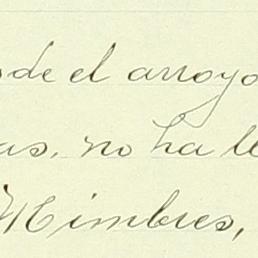 sde el arroyo
as, no ha lle
Mimbres,